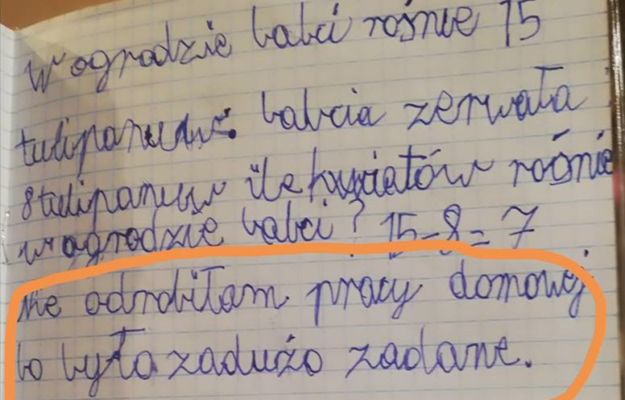 W ogrodzie babci rośnie 15
tulipanów. babcia zerwała
8 tulipanów ile kwiatów rośnie
w ogrodzie babci? 15-8=7
nie odrobiłam pracy domowej
bo było zadużo zadane.